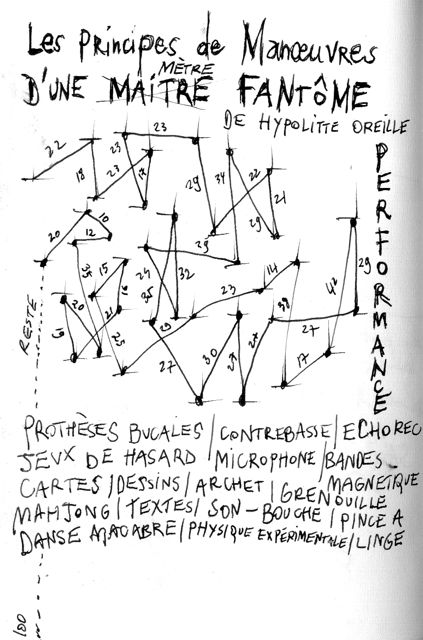 Les principes de Manœuvres
MÈTRE
D'UNE MAÎTRE FANTÔME
DE HYPOLITTE OREILLE
PERFORMANCE
22
23
23
18
23
17
29
34
22
21
29
20
10
12
29
35
15
25
32
14
29
35
23
42
16
20
21
19
25
19
38
27
27
30
24
17
RESTE
100
PROTHÈSES BUCALES / CONTREBASSE / ECHOREC
JEUX DE HASARD / MICROPHONE / BANDES
CARTES / DESSINS / ARCHET / GRENOUILLE MAGNETIQUE
MAHJONG / TEXTES / SON-BOUCHE / PINCE A
DANSE MACABRE / PHYSIQUE EXPÉRIMENTALE / LINGE